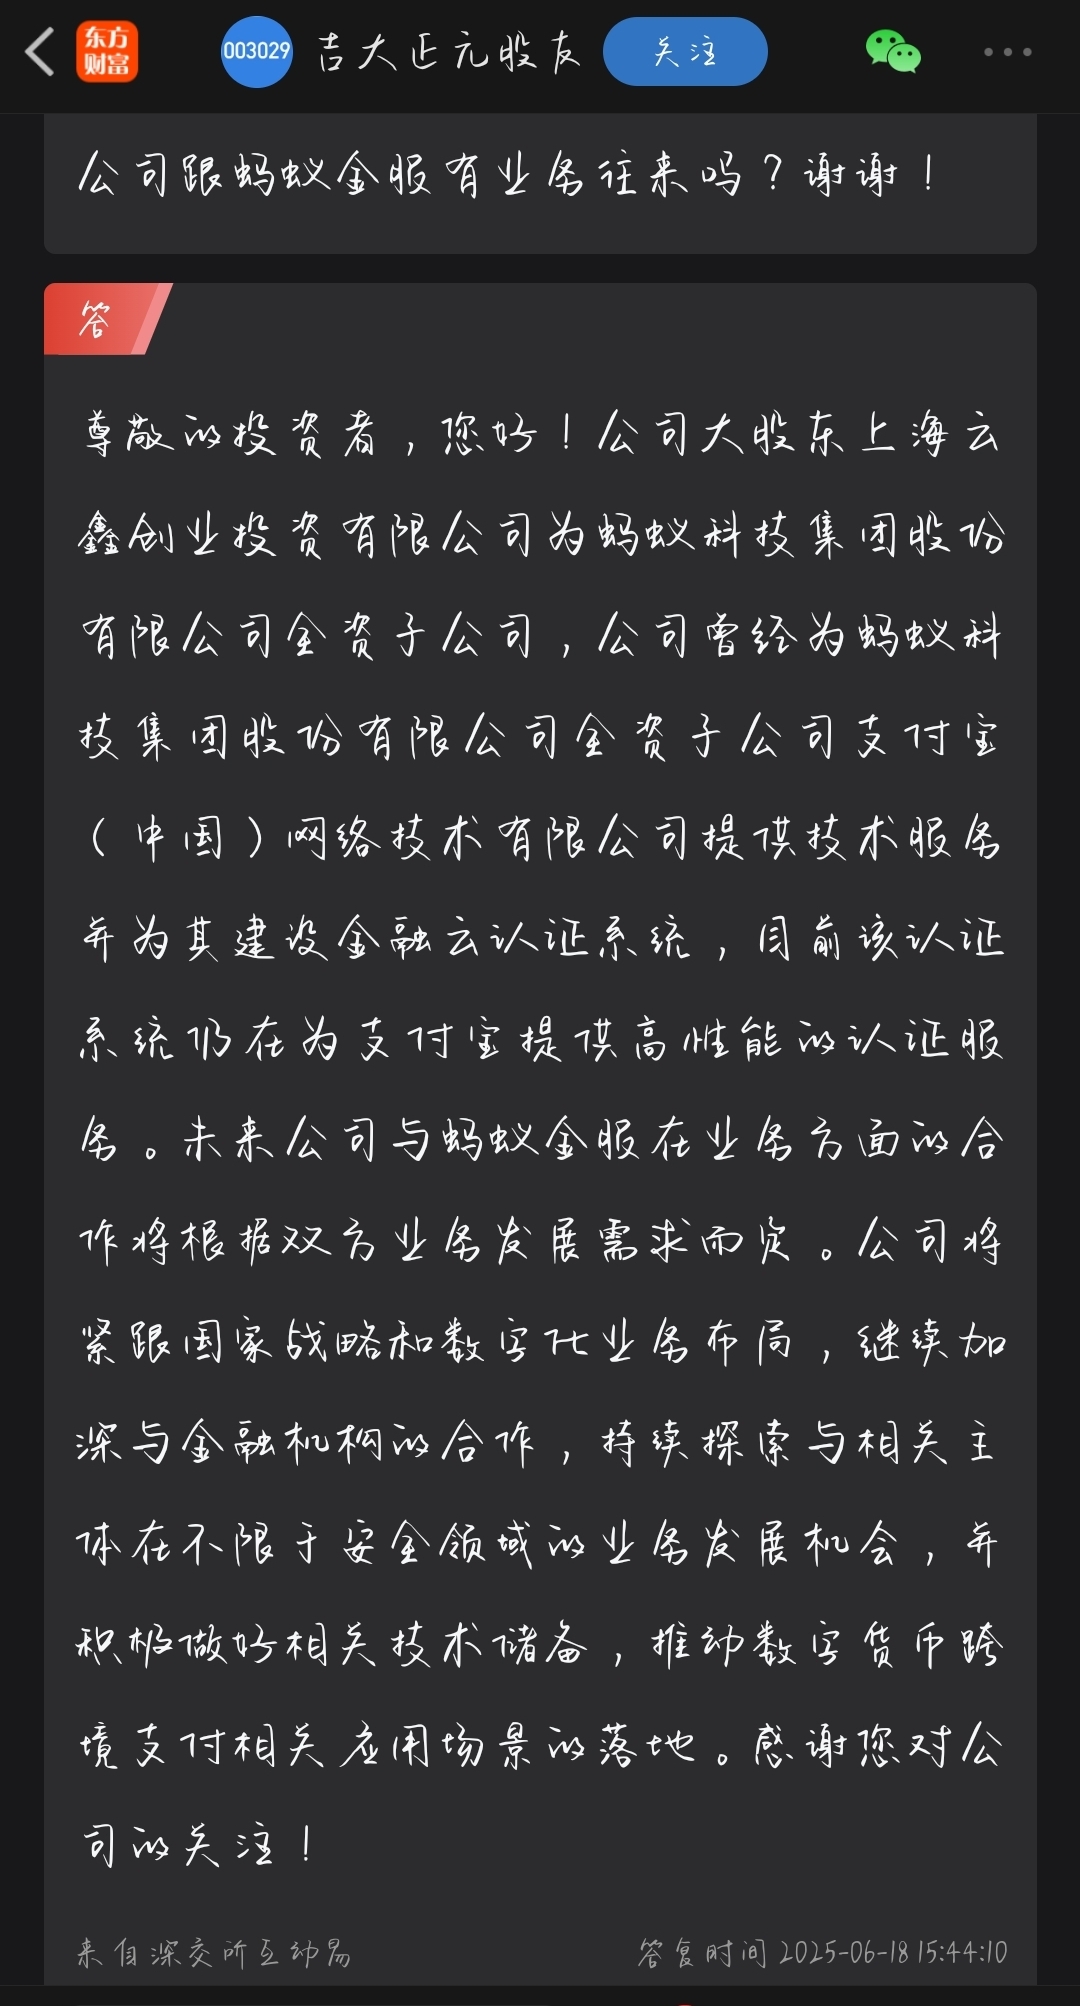 东方财富
003029 吉大正元股友 关注
公司跟蚂蚁金服有业务往来吗？谢谢！
答
尊敬的投资者，您好！公司大股东上海云
鑫创业投资有限公司为蚂蚁科技集团股份
有限公司全资子公司，公司曾经为蚂蚁科
技集团股份有限公司全资子公司支付宝
（中国）网络技术有限公司提供技术服务
并为其建设金融云认证系统，目前该认证
系统仍在为支付宝提供高性能的认证服
务。未来公司与蚂蚁金服在业务方面的合
作将根据双方业务发展需求而定。公司将
紧跟国家战略和数字化业务布局，继续加
深与金融机构的合作，持续探索与相关主
体在不限于安全领域的业务发展机会，并
积极做好相关技术储备，推动数字货币跨
境支付相关应用场景的落地。感谢您对公
司的关注！
来自深交所互动易 答复时间 2025-06-18 15:44:10